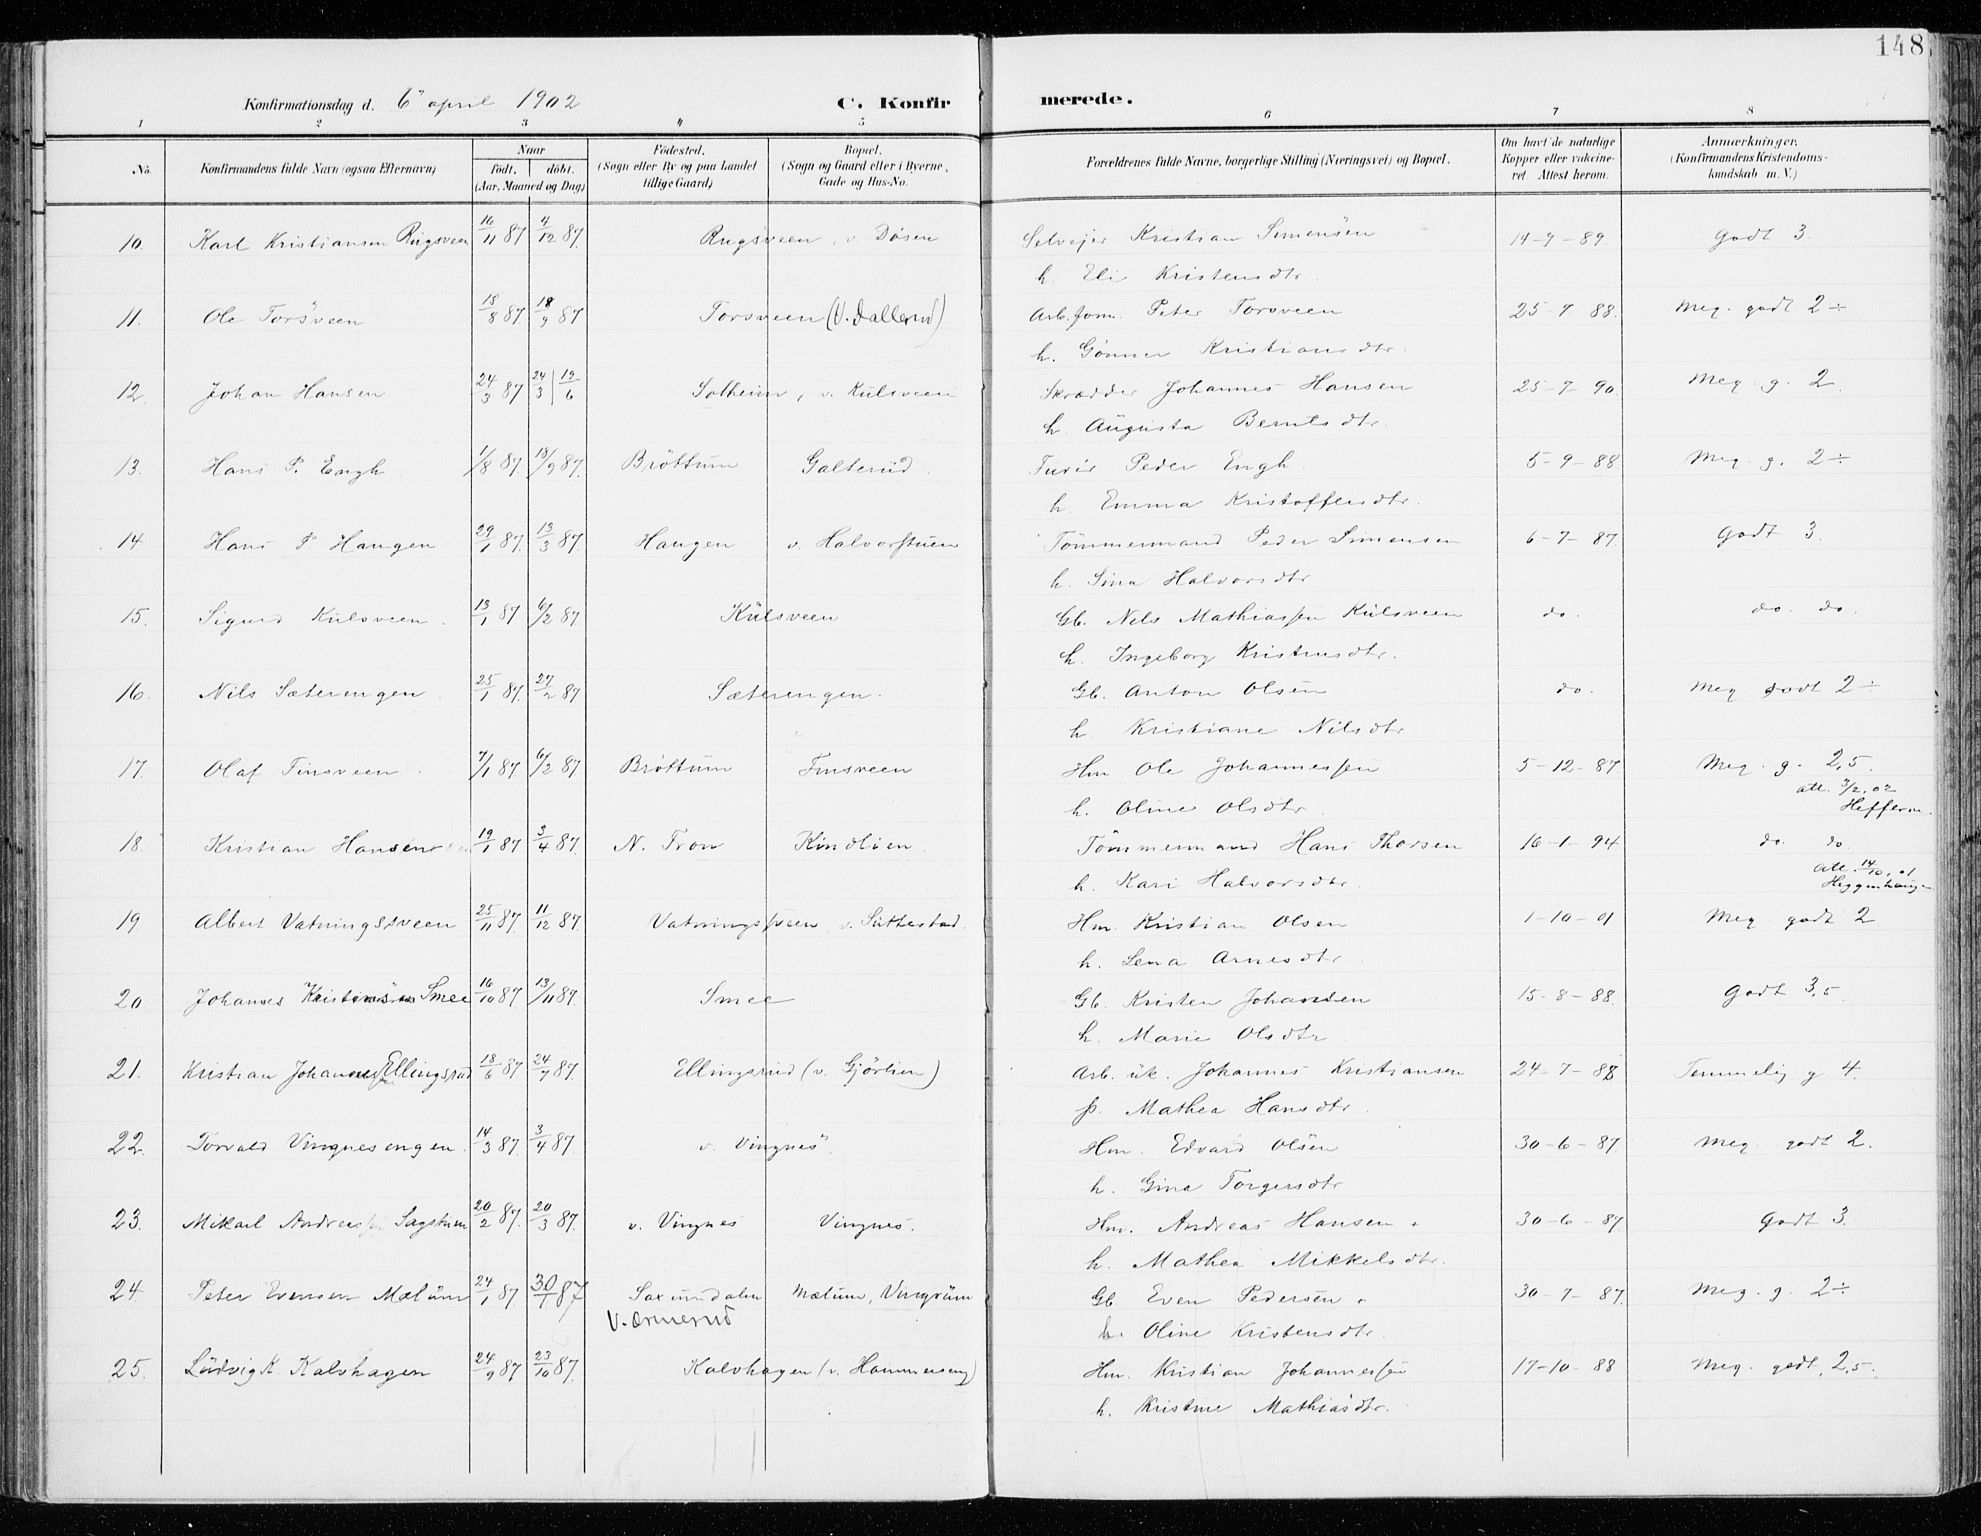 148
Konfirmationsdag d. 6' april 1902 C. Konfirmerede.
1 2 3 4 5 6 7 8
No. Konfirmandens fulde Navn (ogsaa Efternavn) Naar født, døbt. (Aar, Maaned og Dag) Fødested. (Sogn eller By og paa Landet tillige Gaard) Bopæl. (Sogn og Gaard eller i Byerne, Gade og Hus-No. Forældrenes fulde Navne, borgerlige Stilling (Næringsvei) og Bopæl. Om havt de naturlige Kopper eller vakcineret Attest herom. Anmærkninger. (Konfirmandens Kristendomskundskab m. V.)
10. Karl Kristiansen Rugsveen 16/11 87 4/12 87. Rugsveen, v Dösen Selvejer Kristian Simensen 14-9-89. Godt 3.
h. Eli Kristensdtr.
11. Ole Torsveen 18/8 87. 18/9 87 Torsveen (v. Dallerud) Arb.form. Peter Torsveen 25-7-88. Meg. godt 2÷
h. Gönner Kristiansdtr.
12. Johan Hansen 24/3 87 24/3 | 19/6 Solheim, v. Kulsveen Skrædder Johannes Hansen 25-7-90. Meg. g. 2.
h. Augusta Berntsdtr.
13. Hans P. Engh 1/8 87 18/9 87. Bröttum Galterud. Furér Peder Engh. 5-9-88 Meg. g. 2÷
h. Emma Kristoffersdtr.
14. Hans P. Haugen 29/1 87. 13/3 87. Haugen v. Halvorstuen Tömmermand Peder Simensen 6-7-87. Godt 3.
h. Sina Halvorsdtr
15. Sigurd Kulsveen. 13/1 87 6/2 87 Kulsveen Gb. Nils Mathiassen Kulsveen do. do. do.
h. Ingeborg Kristensdtr.
16. Nils Sæterengen. 25/1 87. 27/2 87 Sæterengen. Gb. Anton Olsen do. Meg godt 2÷
h. Kristiane Nilsdtr
17. Olaf Finsveen. 7/1 87. 6/2 87 Bröttum Finsveen Hm. Ole Johannessen 5-12-87 Meg. g. 2,5.
att. 3/2.02
h. Oline Olsdtr. Hefferm.
18. Kristian Hansen 19/1 87 3/4 87. N. Fron Kindlien. Tömmermand Hans Thorsen 16-1-94 do. do.
att. 14/10.01
h. Kari Halvorsdtr. Heggenhaugen
19 Albert Vatningsveen 25/11 87. 11/12 87. Vatningsveen, v. Suttestad. Hm. Kristian Olsen 1-10-01 Meg godt 2
h. Lena Arnesdtr
20. Johannes Kristensen Smee 16/10 87 13/11 87. Smee Gb. Kristen Johansen 15-8-88. Godt 3,5
h. Marie Olsdtr
21. Kristian Johannessen Ellingsrud 18/6 87 24/7 87. Ellingsrud (v. Gjörlien) Arb. uk. Johannes Kristiansen 24-7-88 Temmelig g 4.
p. Mathea Hansdtr.
22. Torvald Vingnesengen. 14/3 87. 3/4 87. v. Vingnes. Hm. Edvard Olsen 30-6-87. Meg. godt 2.
h. Gina Torgersdtr
23. Mikael Andreassen Sagstuen 20/2 87. 20/3 87. v. Vingnes Vingnes. Hm. Andreas Hansen 30-6-87 Godt 3.
h. Mathea Mikkelsdtr.
24 Peter Evensen Mælum 24/1 87. 30/1 87 Saxumdalen Mælum, Vingrum Gb. Even Pedersen 30-7-87. Meg. g. 2÷
v. Ormerud h. Oline Kristensdtr.
25. Ludvig K. Kalvhagen 24/9 87 23/10 87. Kalvhagen (v. Hammereng) Hm. Kristian Johannessen 17-10-88 Meg. godt, 2,5.
h. Kristine Mathiasdtr.